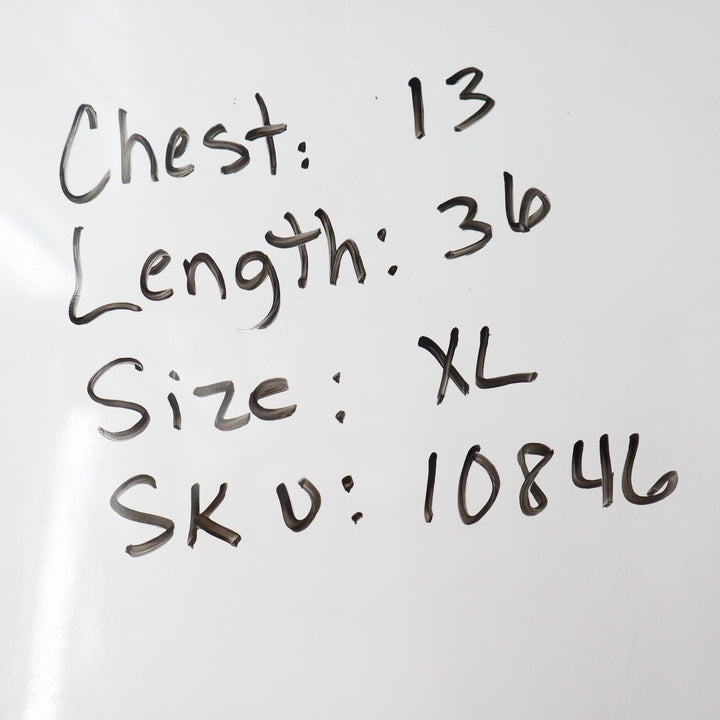 Chest: 13
Length: 36
Size: XL
SKU: 10846